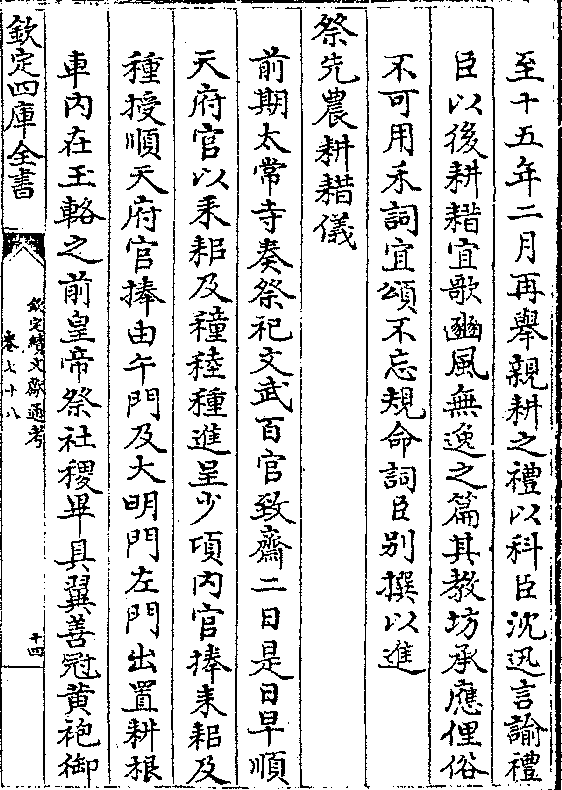 至十五年二月再舉親耕之禮以科臣沈迅言諭禮
臣以後耕耤宜歌豳風無逸之篇其教坊承應俚俗
不可用禾詞宜頌不忘規命詞臣别撰以進
祭先農耕耤儀
前期太常寺奏祭祀文武百官致齋二日是日早順
天府官以耒耜及穜稑種進呈少頃内官捧耒耜及
種授順天府官捧由午門及大明門左門出置耕根
車内在玉輅之前皇帝祭社稷畢具翼善冠黄袍御
欽定四庫全書
欽定續文獻通考
卷七十八
十四